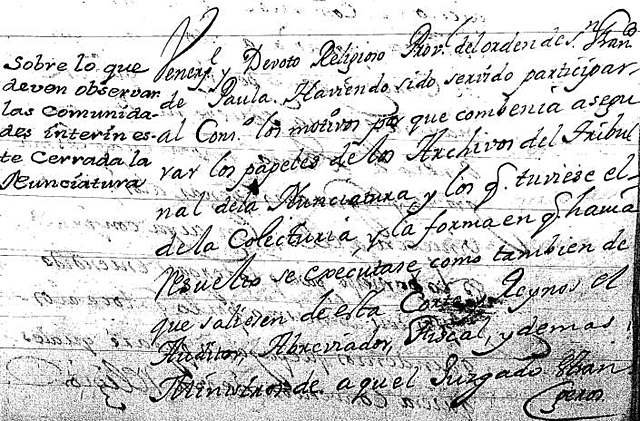 Sobre lo que
deven observar
las Comunida-
des interin es-
te Cerrada la
Nunciatura
Venerl. y Devoto Religioso Provl. del orden de Sn. Franco.
de Paula. Haviendo sido servido participar
al Conso. los motivos pr. que combenia asegu
rar los papeles de los Archivos del Tribu
nal dela Nunciatura, y los q. tuviese el
dela Colecturia y la forma en q. havia
resuelto se executase como tambien de
que saliesen de esta Corte y Reynos el
Auditor, Abreviador, Fiscal, y demas
Ministros de aquel Juzgado